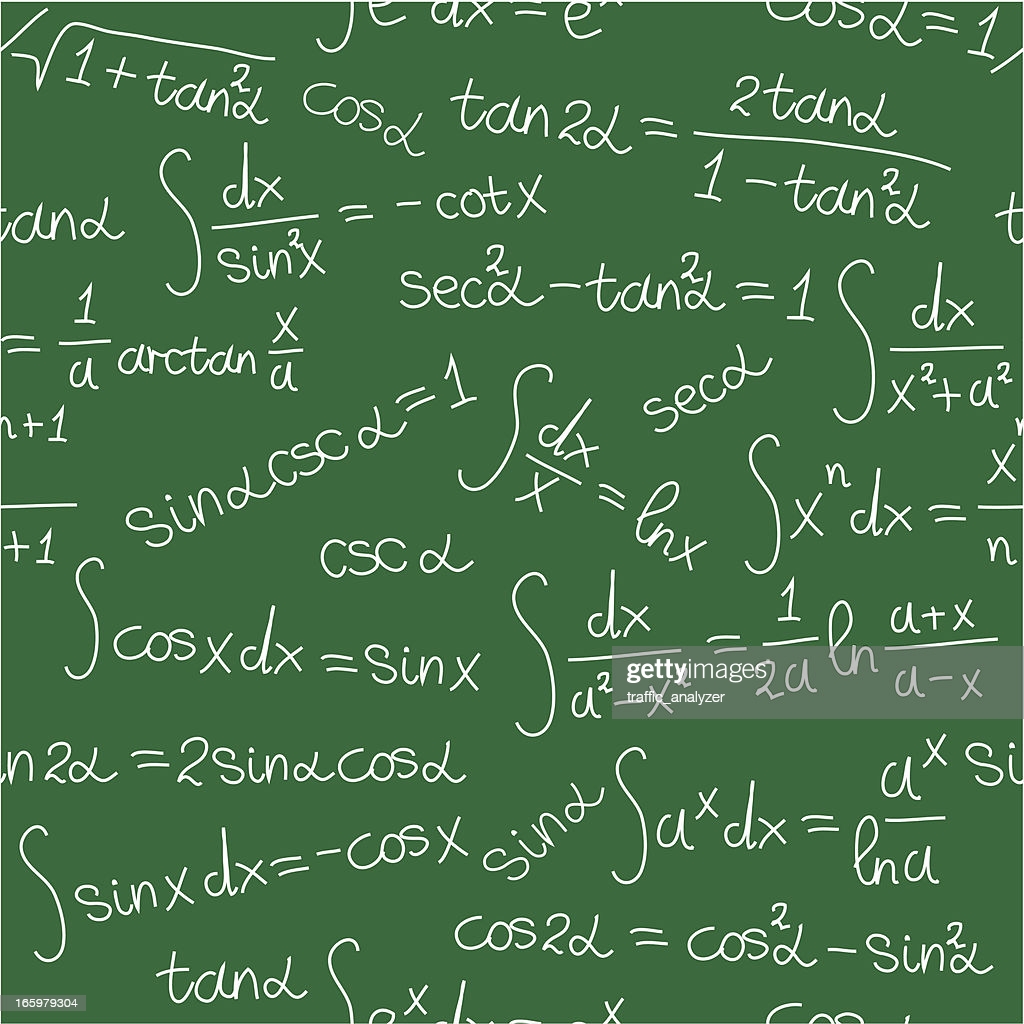 ∫ e dx = e^x
cos α = 1
√(1 + tan²α)
cos α
tan 2α = 2tanα / (1 - tan²α)
tanα
∫ dx / sin²x = - cot x
t
sec²α - tan²α = 1
∫ dx / (x² + a²)
= 1/a arctan x/a
sinα cscα = 1
∫ dx/x = ln x
secα
n+1
+1
∫ xⁿ dx = x / n
csc α
∫ cos x dx = sin x
∫ dx / (a² - x²) = 1/2a ln (a+x)/(a-x)
gettyimages
traffic_analyzer
n2α = 2sinα cosα
sinα
∫ aˣ dx = aˣ / ln a
si
∫ sin x dx = - cos x
cos2α = cos²α - sin²α
tanα
∫ eˣ
165979304